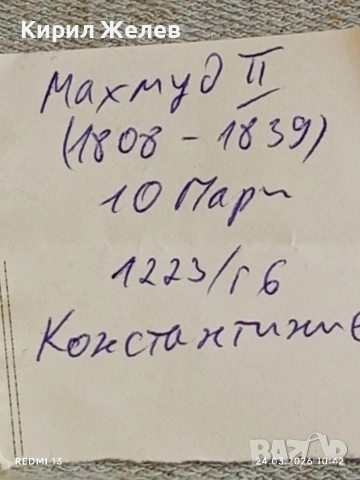 Кирил Желев
Махмуд II
(1808 - 1839)
10 Пари
1223/г 6
REDMI 13
24.03.2026 10:42
BAZAR